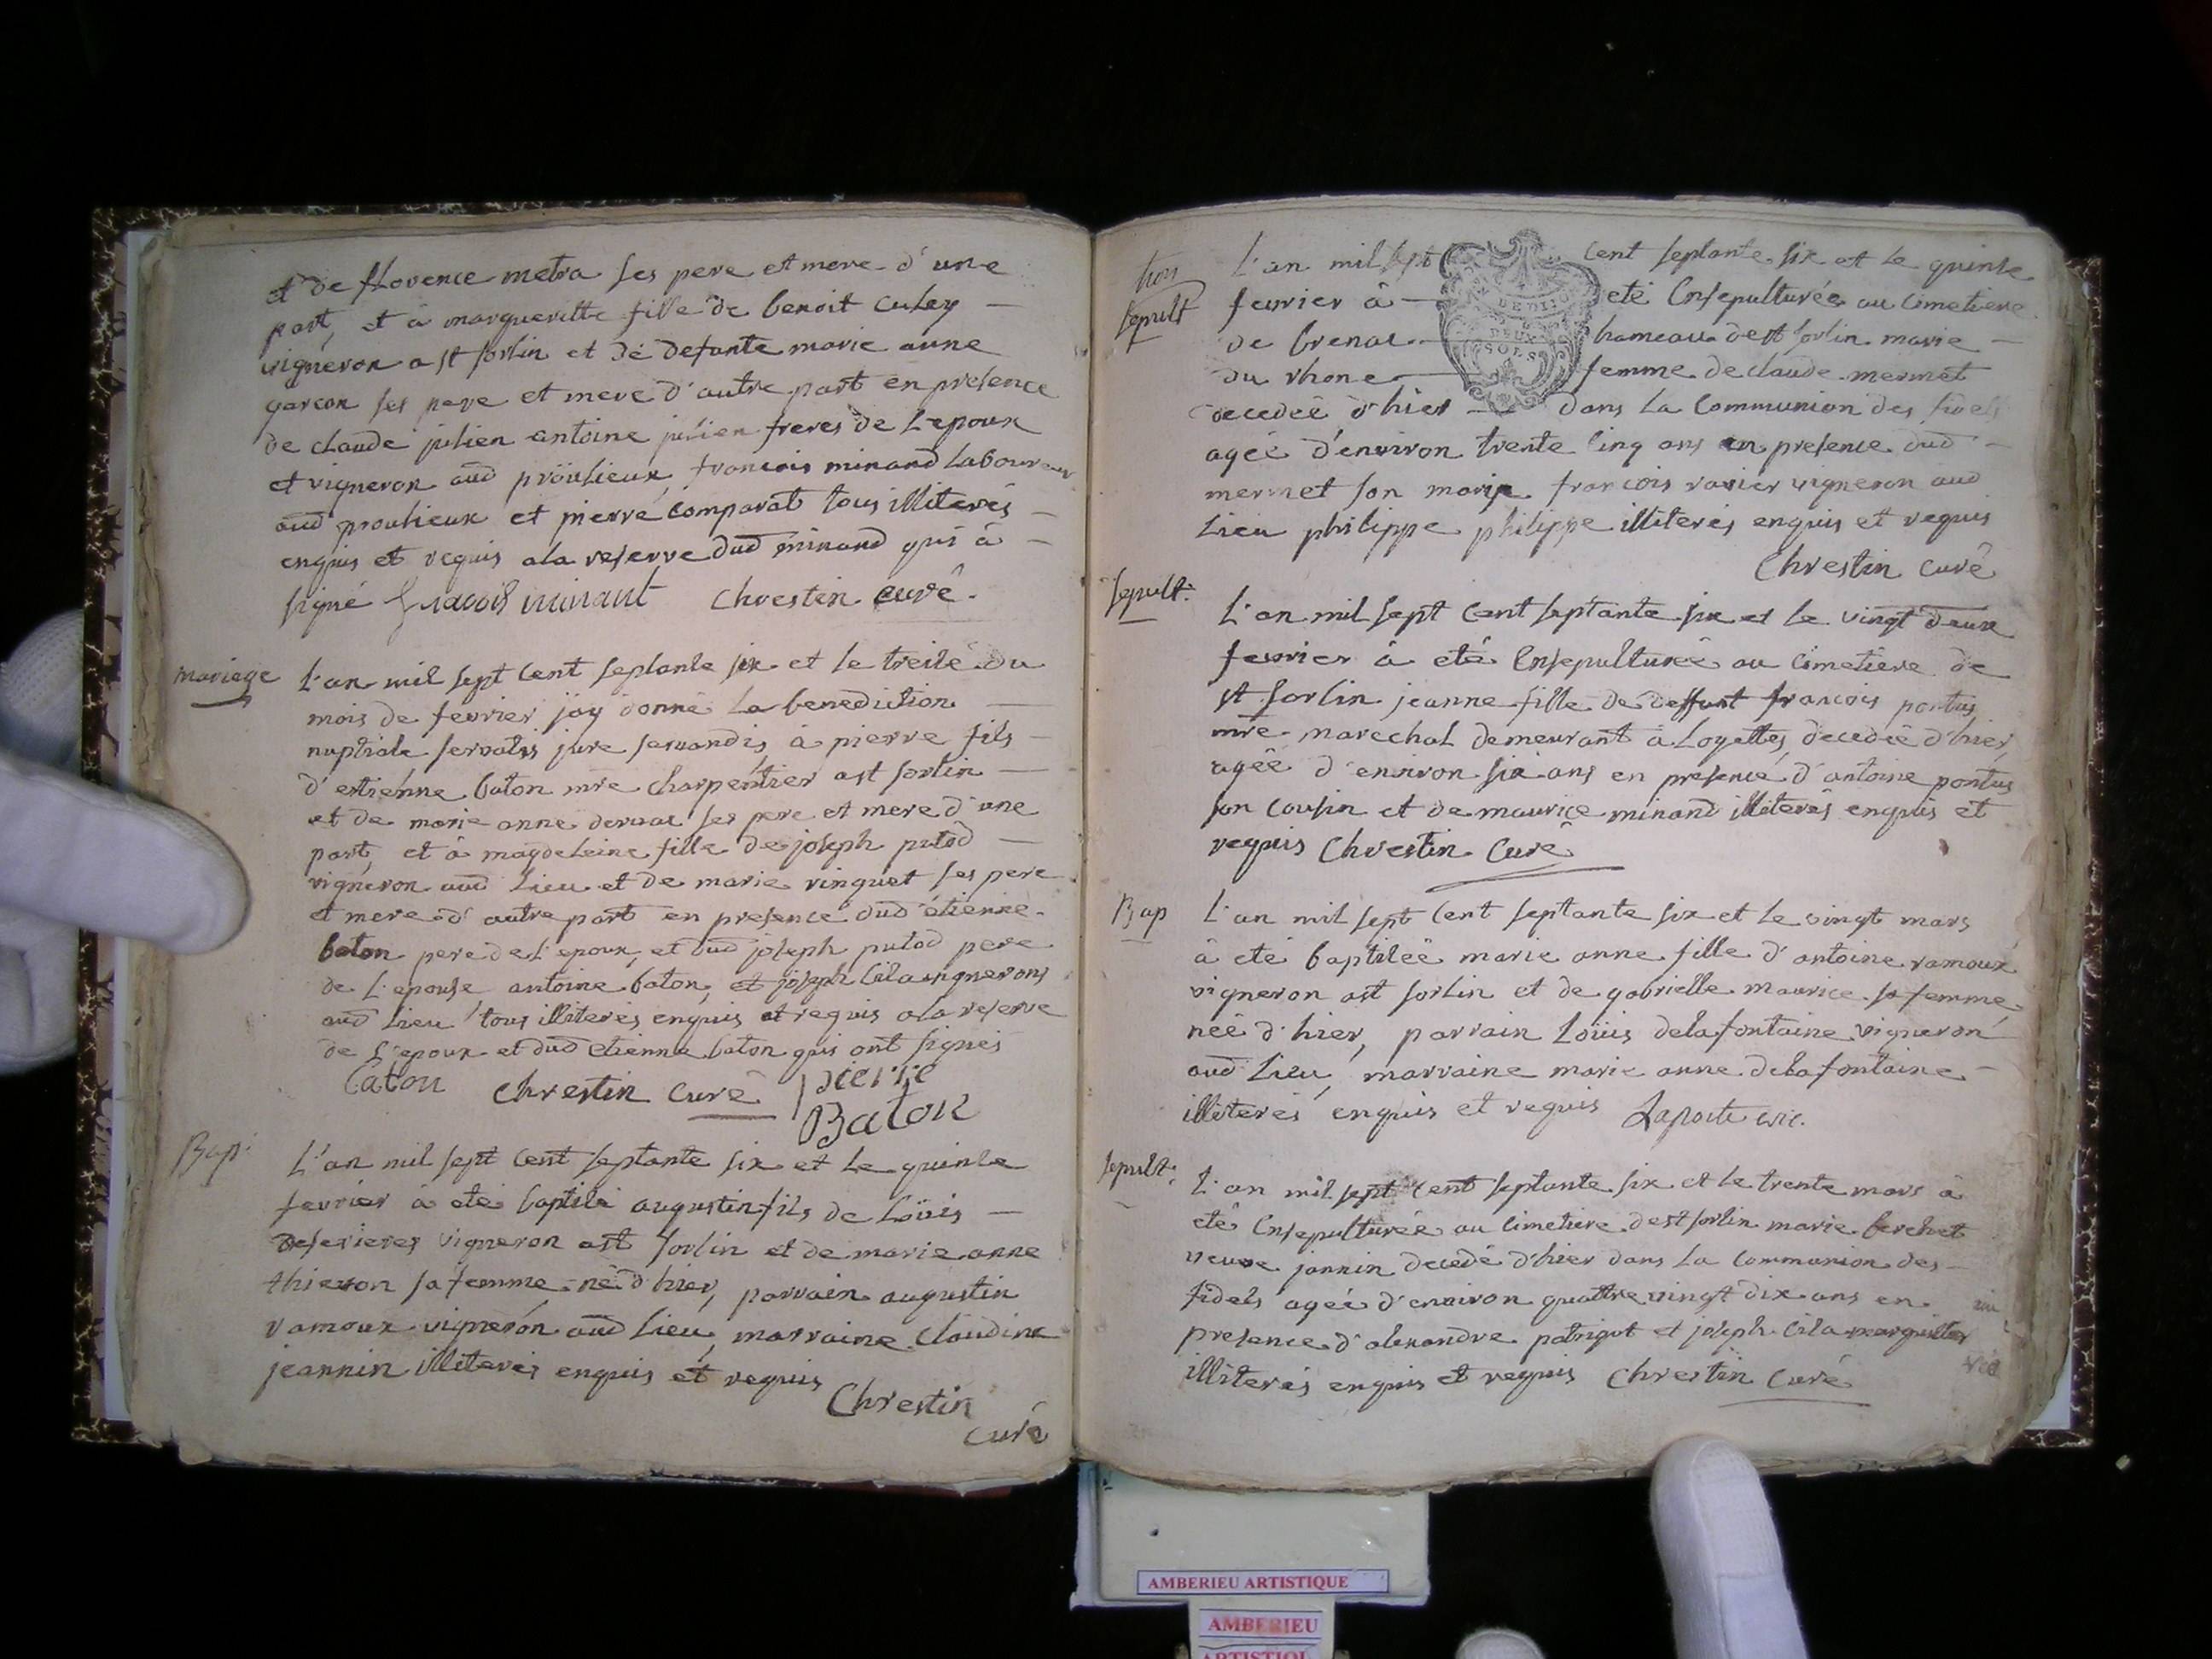 et de florence metra ses pere et mere d'une
part, et à margueritte fille de benoit cutey
vigneron a st sorlin et de defunte marie anne
garcon ses pere et mere d'autre part en presence
de claude julien antoine julien freres de l'epoux
et vigneron aud proulieux, francois minand laboureur
aud proulieux et pierre comparat tous illiterés
enquis et requis a la reserve dud minand qui à
signé francois minant chrestin curé.
mariage
L'an mil sept cent septante six et le treize du
mois de fevrier j'ay donné la benediction
nuptiale servatis jure servandis à pierre fils
d'estienne baton mre charpentier a st sorlin
et de marie anne ses pere et mere d'une
part, et à magdeleine fille de joseph putod
vigneron aud lieu et de marie vinguet ses pere
et mere d'autre part en presence dud étienne
baton pere de l'epoux, et dud joseph putod pere
de l'epouse antoine baton, et joseph cila vignerons
aud lieu tous illiterés enquis et requis a la reserve
de l'epoux et dud etienne baton qui ont signés
baton chrestin curé pierre
Baton
Bap:
L'an mil sept cent septante six et le quinze
fevrier à eté baptisé augustin fils de loüis
deserieres vigneron a st sorlin et de marie anne
thieron sa femme né d'hier, parrain augustin
ramoux vigneron aud lieu, marraine claudine
jeannin illiterés enquis et requis
Chrestin
curé
sepult
L'an mil sept cent septante six et le quinze
fevrier à eté ensepulturée au cimetiere
de brenas hameau de st sorlin marie
du rhone femme de claude mermet
decedée d'hier dans la communion des fidels
agée d'environ trente cinq ans en presence dud
mermet son marix francois ravier vigneron aud
lieu philippe philippe illiterés enquis et requis
Chrestin curé
sepult:
L'an mil sept cent septante six et le vingt deux
fevrier à eté ensepulturée au cimetiere de
st sorlin jeanne fille de deffunt francois pontus
mre marechal demeurant à loyettes, decedée d'hier,
agée d'environ six ans en presence d'antoine pontus
son cousin et de maurice minand illiterés enquis et
requis Chrestin curé
Bap
L'an mil sept cent septante six et le vingt mars
à eté baptisée marie anne fille d'antoine ramoux
vigneron a st sorlin et de gabrielle maurice sa femme
née d'hier, parrain loüis delafontaine vigneron
aud lieu, marraine marie anne delafontaine
illiterés enquis et requis Laporte vic.
sepult:
L'an mil sept cent septante six et le trente mars à
eté ensepulturée au cimetiere de st sorlin marie berchet
veuve jannin decedé d'hier dans la communion des
fidels agée d'environ quattre vingt dix ans en
presence d'alexandre patrigot et joseph cila marguillier
illiterés enquis et requis Chrestin curé
AMBERIEU ARTISTIQUE
AMBERIEU
ARTISTIQUE